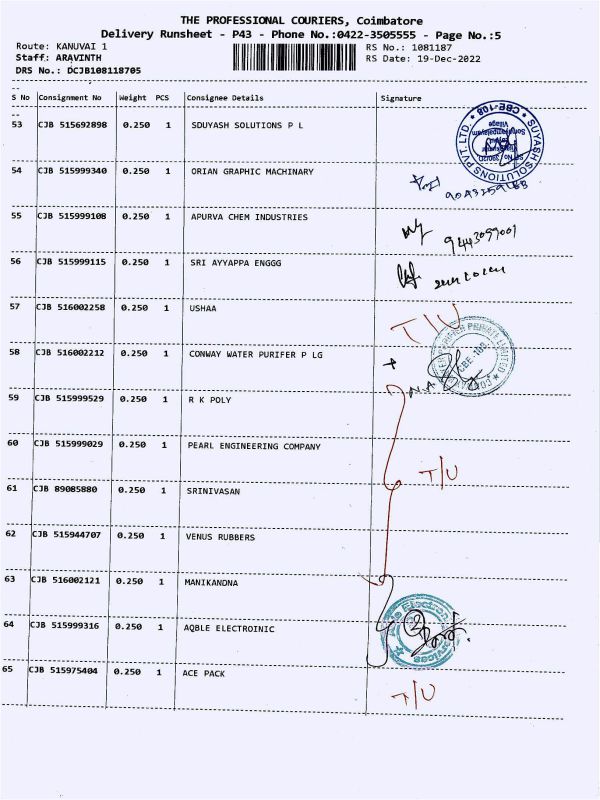 THE PROFESSIONAL COURIERS, Coimbatore
Delivery Runsheet - P43 - Phone No.:0422-3505555 - Page No.:5
Route: KANUVAI 1 RS No.: 1081187
Staff: ARAVINTH RS Date: 19-Dec-2022
DRS No.: DCJB108118705
S No Consignment No Weight PCS Consignee Details Signature
53 CJB 515692898 0.250 1 SDUYASH SOLUTIONS P L
SUYASH SOLUTIONS PVT. LTD. CBE-108
54 CJB 515999340 0.250 1 ORIAN GRAPHIC MACHINARY
55 CJB 515999108 0.250 1 APURVA CHEM INDUSTRIES
9443099001
56 CJB 515999115 0.250 1 SRI AYYAPPA ENGGG
57 CJB 516002258 0.250 1 USHAA T/U
58 CJB 516002212 0.250 1 CONWAY WATER PURIFER P LG
PRIVATE LIMITED CBE-108
59 CJB 515999529 0.250 1 R K POLY
60 CJB 515999029 0.250 1 PEARL ENGINEERING COMPANY T/U
61 CJB 89085880 0.250 1 SRINIVASAN
62 CJB 515944707 0.250 1 VENUS RUBBERS
63 CJB 516002121 0.250 1 MANIKANDNA
64 CJB 515999316 0.250 1 AQBLE ELECTROINIC
2
65 CJB 515975404 0.250 1 ACE PACK T/U